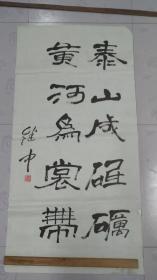 泰山成砥礪
黄河爲裳帶
中